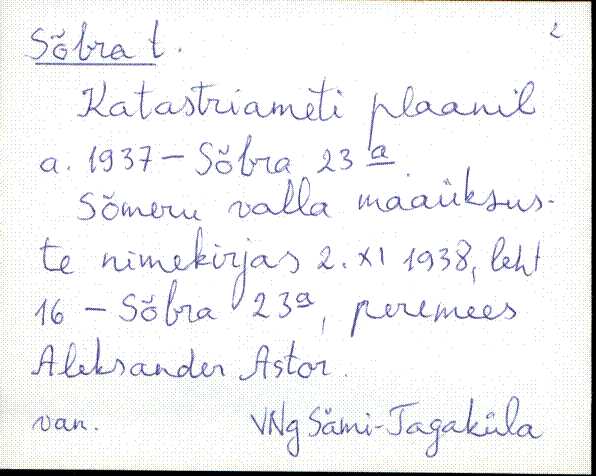 Sõbra t. 2
Katastriameti plaanil
a. 1937 – Sõbra 23a
Sõmeru valla maaüksus-
te nimekirjas 2. XI 1938, leht
16 – Sõbra 23a, peremees
Aleksander Astor.
van. VNg Sämi-Tagaküla